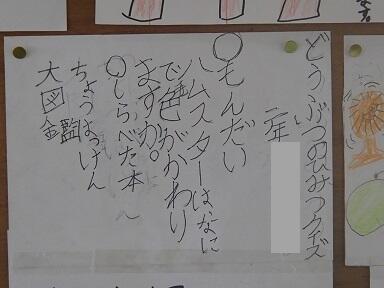 どうぶつのひみつクイズ
二年
○もんだい
ハムスターはなに
で色がかわり
ますか。
○しらべた本
ちょうはっけん
大図鑑
ます。